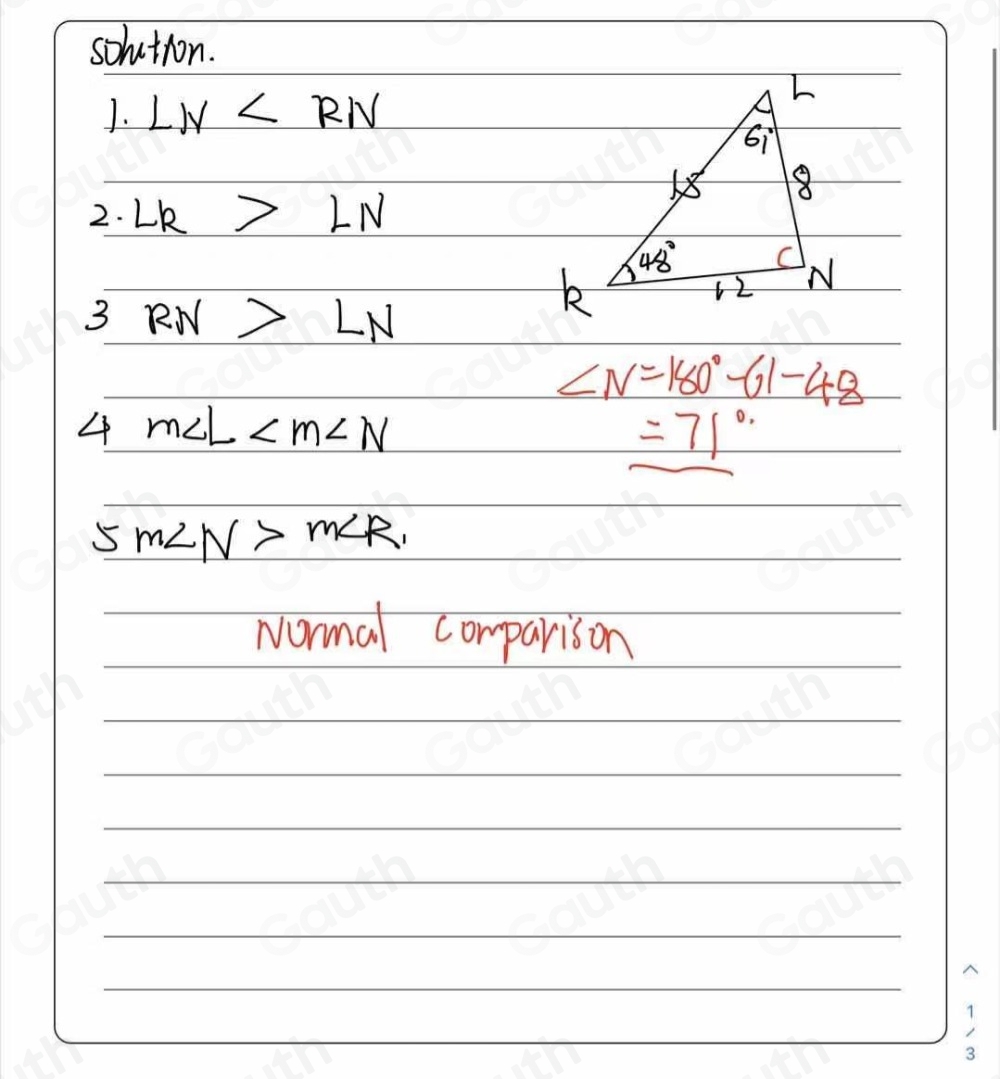 solution.
1. LN < RN
2. LR > LN
3 RN > LN
4 m∠L < m∠N
5 m∠N > m∠R.
L
61°
15
8
48°
R
12
N
∠N = 180° - 61 - 48
= 71°.
Normal comparison
Gauth
1
/
3